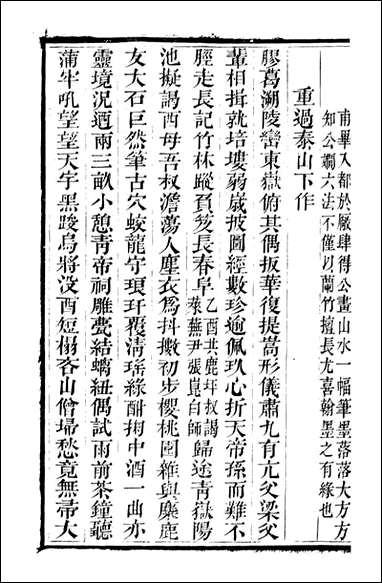 甫畢入都於厰肆得公畫山水一幅筆墨落落大方方
知公嫺六法不僅以蘭竹擅長尤喜翰墨之有緣也
重過泰山下作
膠葛溯陵巒東嶽俯其偶扳華復提嵩形儀肅九有亢父梁父
輩相揖就培塿弱嵗披圖經數珍逾佩玖心折天帝孫而難不
脛走長記竹林蹤負笈長春阜乙酉共鹿坪叔謁萊蕪尹張崑白師歸途青嶽陽
池擬謁西母吾叔澹蕩人塵衣爲抖擻初步櫻桃園雜與麋鹿
友大石巨然筆古穴蛟龍守瓊玕覆清瑤綠酣掬中酒一曲亦
靈境況廼兩三畝小憩青帝祠雕甍結螭紐偶試雨前茶鐘聽
蒲牢吼望望天宇黑踆烏將没酉短榻吝山僧埽愁竟無帚大